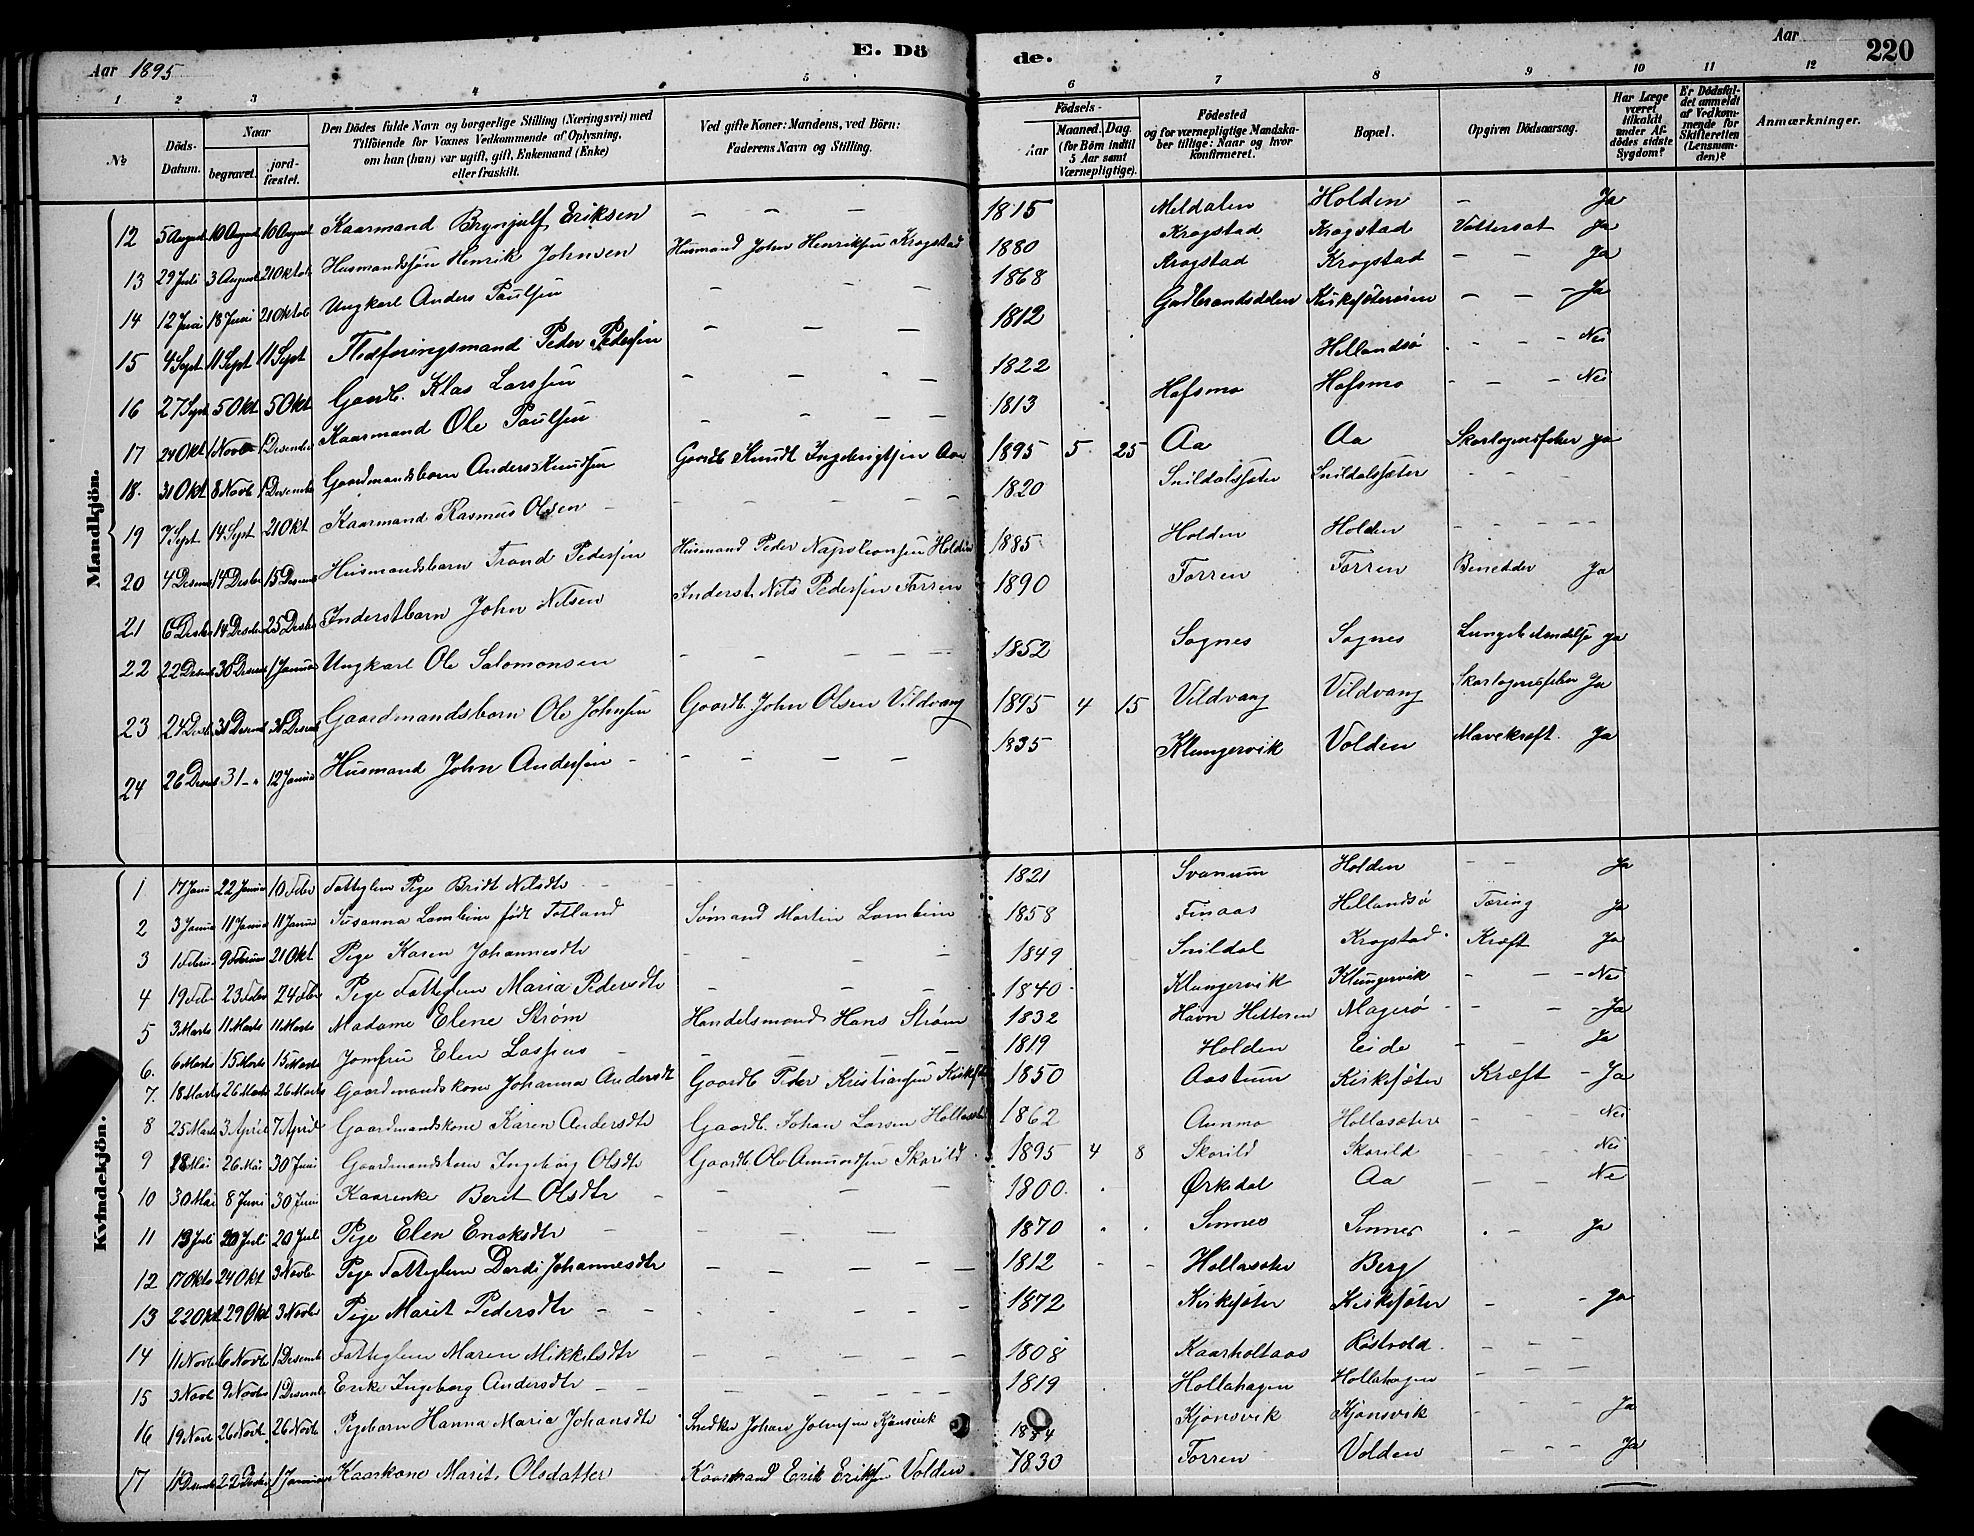 Aar 1895
E. Dö
de.
Aar
220
1 2 3 4 5 6 7 8 9 10 11 12
No
Döds-Datum.
Naar
begravet.
jordfæstet.
Den Dödes fulde Navn og borgerlige Stilling (Næringsvei) med
Tilföiende for Voxnes Vedkommende af Oplysning,
om han (hun) var ugift, gift, Enkemand (Enke)
eller fraskilt.
Ved gifte Koner: Mandens, ved Börn:
Faderens Navn og Stilling.
Födsels-
Aar
Maaned. Dag.
(for Börn indtil
5 Aar samt
Værnepligtige).
Födested
og for værnepligtige Mandska-
ber tillige: Naar og hvor
konfirmeret.
Bopæl.
Opgiven Dödsaarsag.
Har Læge
været
tilkaldt
under Af-
dödes sidste
Sygdom?
Er Dödsfal-
det anmeldt
af Vedkom-
mende for
Skifteretten
(Lensman-
den)?
Anmærkninger.
Mandkjön.
12 5 August 10 August 10 August Kaarmand Brynjulf Eriksen — — — 1815 Meldalen Holden — Ja
13 29 Juli 3 August 21 Oktob Husmandssøn Henrik Johnsen Husmand John Henriksen Krogstad 1880 Krogstad Krogstad Vattersot Ja
14 12 Juni 18 Juni 21 Oktob Ungkarl Anders Paulsen — — — 1868 Krogstad Krogstad — — Ja
15 4 Sept 11 Sept 11 Sept Flodføringsmand Peder Pedersen — — — 1812 Gudbrandsdalen Kirksæterøien — — — Ja
16 27 Sept 5 Okt 5 Okt Gaardb. Klas Larssen — — — — 1822 Hellandsø — — Nei
17 24 Okt 1 Novb 1 Desember Kaarmand Ole Paulsen — — — — 1813 Hafsmo Hafsmo — — — Nei
18. 31 Okt 8 Novb 1 Desemb Gaardmandsbarn Anders Knudsen Gaardb Knudt Ingebrigtsen Aa 1895 5 25 Aa Aa Ja
19 7 Sept 14 Sept 21 Okt Kaarmand Rasmus Olsen — — — — — 1820 Snildalssæter Snildalssæter — — —
20 4 Desem 14 Desbr 15 Desem Husmandsbarn Trond Pedersen Husmand Peder Napoleonsen Holden 1885 Holden Holden — — — —
21 6 Desbr 14 Desbr 25 Desbr Inderstbarn John Nilsen Inderst. Nils Pedersen Forren 1890 Forren Forren Ja
22 22 Desem 30 Desem 1 Januar Ungkarl Ole Salomonsen — — — — — 1852 Sognes Sognes Lungebetændelse Ja
23 24 Desb 31 Desem 31 Desem Gaardmandsbarn Ole Johnsen Gaardb. John Olsen Vildvang 1895 4 15 Vildvang Vildvang Ja
24 26 Desem 31 - " 12 Januar Husmand John Andersen — — — — — 1835 Klungervik Volden Mavekræft. Ja
Kvindekjön.
1 17 Janu 22 Januar 10 Febr Fattiglem Pige Bridt Nilsdtr — — 1821 Svanum Holden — — Ja
2 3 Januar 11 Januar 11 Januar Susanna Lambine født Totland Sømand Martin Lambine 1858 Finaas Hellandsø Tæring Ja
3 1 Februar 9 Februar 21 Okt Pige Karen Johannesdtr — — — 1849 Snildal Krogstad Kræft Ja
4 19 Febr 23 Febr 24 Febr Pige Fattiglem Maria Pedersdtr — — — 1840 Klungervik Klungervik — — — Nei
5 3 Marts 11 Marts 11 Marts Madame Elene Strøm Handelsmand Hans Strøm 1832 Havn Hitteren Magerø — — — Ja
6. 6 Marts 15 Marts 15 Marts Jomfru Elen Laspus — — — — 1819 Holden Eide — — Ja
7. 18 Marts 26 Marts 26 Marts Gaardmandskone Johanna Andersdt Gaardb Peder Kristiansen Kirksæter 1850 Aastum Kirksæter Kræft — Ja
8 25 Marts 3 April 7 April Gaardmandskone Karen Andersdtr Gaardb. Johan Larsen Hollasæter 1862 Aunmo Hollasæter — — Nei
9 18 Mai 26 Mai 30 Juni Gaardmandsbarn Ingeborg Olsdtr Gaardb. Ole Amundsen Skorild 1895 4 8 Skorild Skorild — — Nei
10 30 Mai 8 Juni 30 Juni Kaarenke Berit Olsdtr — — — — 1800. Ørkedal Aa — — Ne
11 13 Juli 20 Juli 20 Juli Pige Elen Enoksdtr — — — — 1870 Sinnes Sinnes — Ja
12 17 Okto 24 Okt 3 Novbr Pige Fattiglem Dordi Johannesdtr — — — — 1812 — — Hollasæter Berg
13 22 Okt 29 Okt 3 Novbr Pige Marit Pedersdtr — — — — 1872 Kirksæter Kirksæter — — Ja
14 11 Novb 16 Novb 1 Desemb Fattiglem Maren Mikkelsdtr — — — — 1808 Kaarholtaas Røstvold. — —
15 3 Novb 9 Novbr 1 Desemb Enke Ingeborg Andersdtr — — — — 1819 Hollahagen Hollahagen — — —
16 19 Novb 26 Novb. 26 Novb Pigebarn Hanna Maria Johansdtr Snedker Johan Johnsen Kjønsvik 1884 Kjønsvik Kjønsvik — — — Ja
17 11 Desemb 22 Desbr 1 Januar Kaarkone Marit Olsdatter Kaarmand Erik Eriksen Volden 1830 Forren Volden — — — Ja